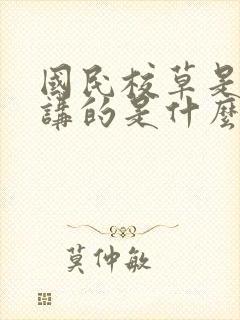 國民校草是
講的是什麼
莫仲敏